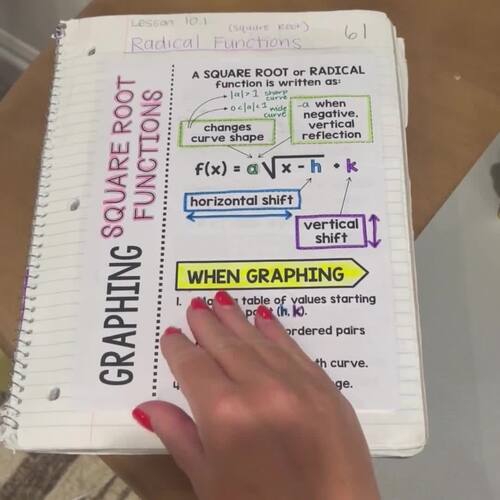 Lesson 10.1 (Square Root)
61
Radical Functions
GRAPHING SQUARE ROOT
FUNCTIONS
A SQUARE ROOT or RADICAL
function is written as:
|a|>1 sharp
curve
0<|a|<1 wide
curve
changes
curve shape
-a when
negative,
vertical
reflection
f(x) = a√x - h + k
horizontal shift
vertical
shift
WHEN GRAPHING
1. table of values starting
(h, k).
ordered pairs
curve.
4